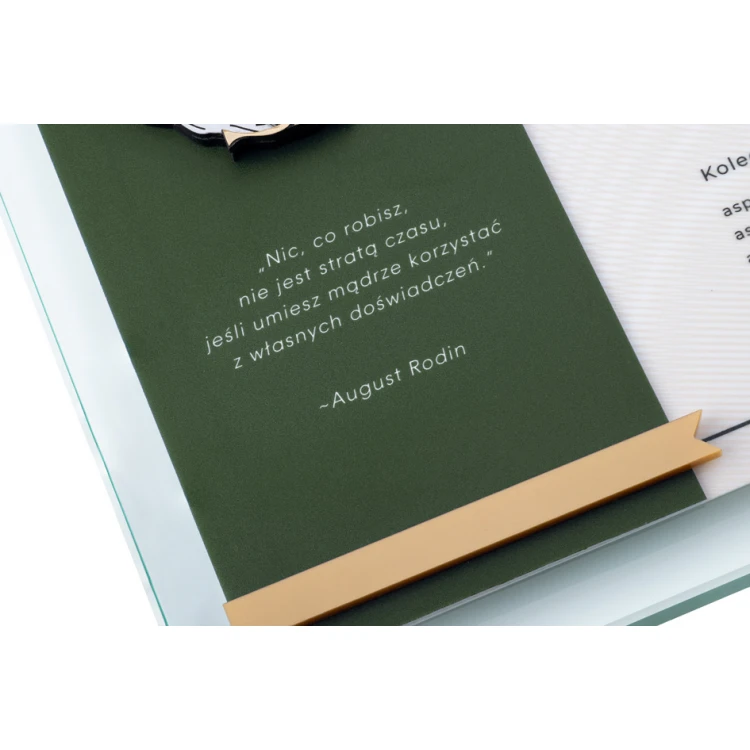 „Nic, co robisz,
nie jest stratą czasu,
jeśli umiesz mądrze korzystać
z własnych doświadczeń.”
~August Rodin